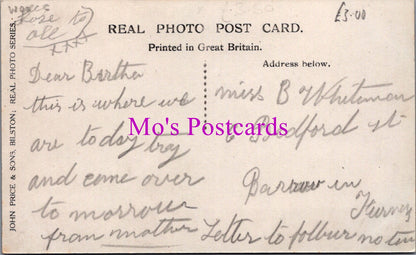 Rose to
all
XXXX
£3.00
REAL PHOTO POST CARD.
Printed in Great Britain.
Address below.
JOHN PRICE & SONS, BILSTON; REAL PHOTO SERIES.
Dear Bertha
this is where we
are today try
and come over
to morrow
from mother
Miss B Whiteman
6 Bradford st
Barrow in
Furness
Letter to follow no time
Mo's Postcards